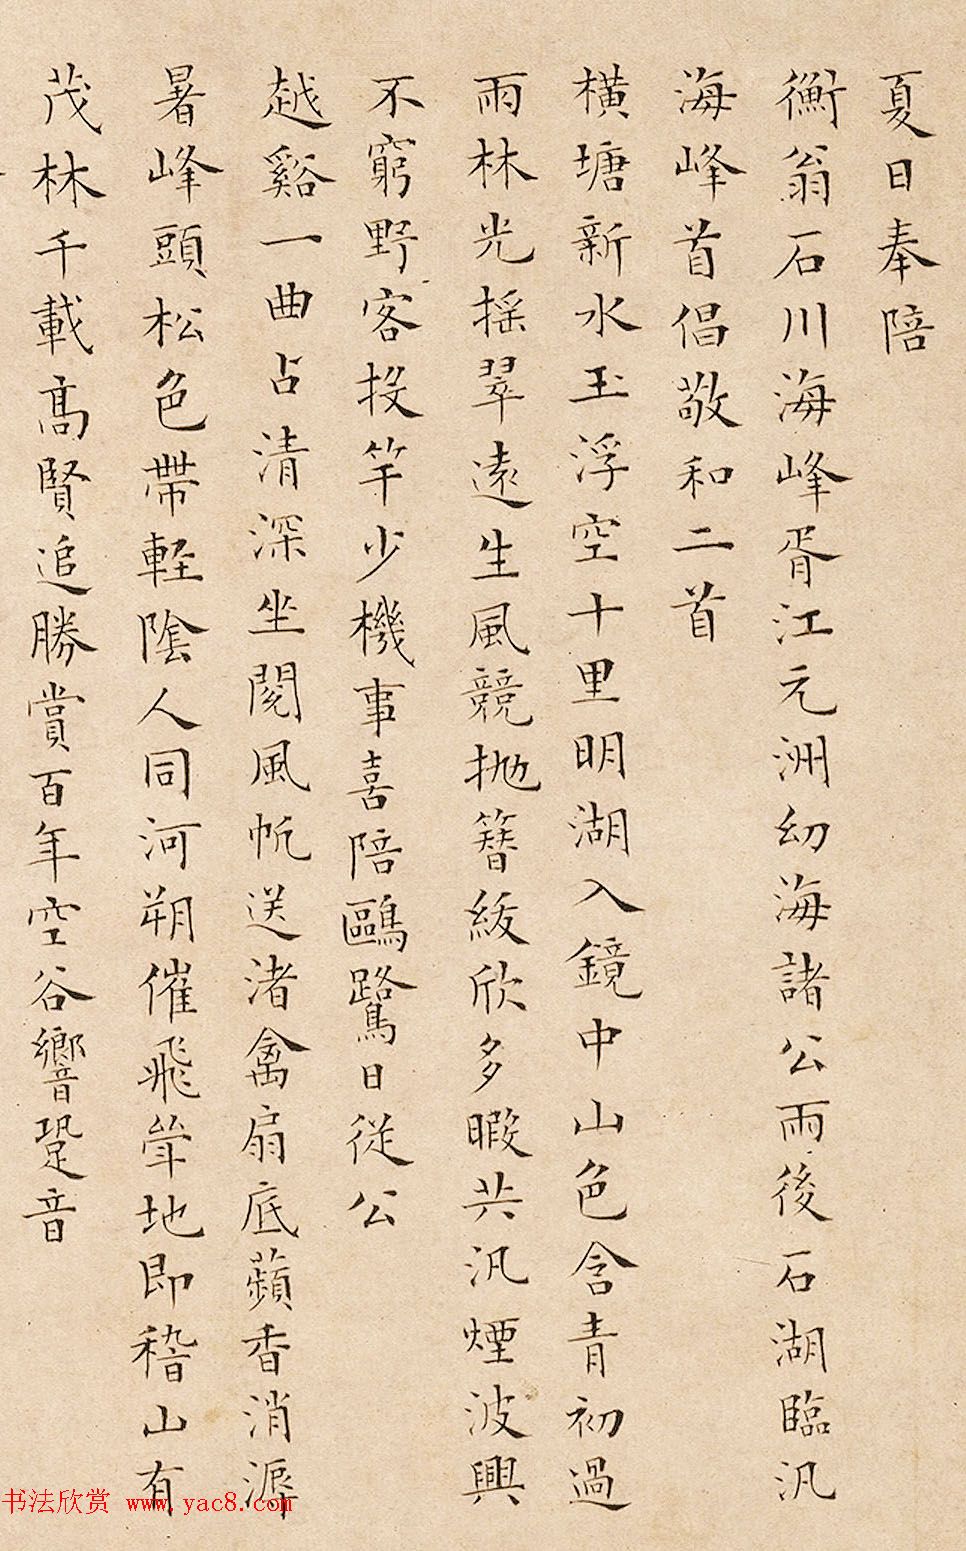 夏日奉陪
衡翁石川海峰胥江元洲幼海諸公雨後石湖臨汎
海峰首倡敬和二首
橫塘新水玉浮空十里明湖入鏡中山色含青初過
雨林光摇翠遠生風競拋簪紱欣多暇共汎煙波興
不窮野客投竿少機事喜陪鷗鷺日從公
越谿一曲占清深坐閱風帆送渚禽扇底蘋香消溽
暑峰頭松色帶輕陰人同河朔催飛斝地即稽山有
茂林千載高賢追勝賞百年空谷響跫音
书法欣赏 www.yac8.com